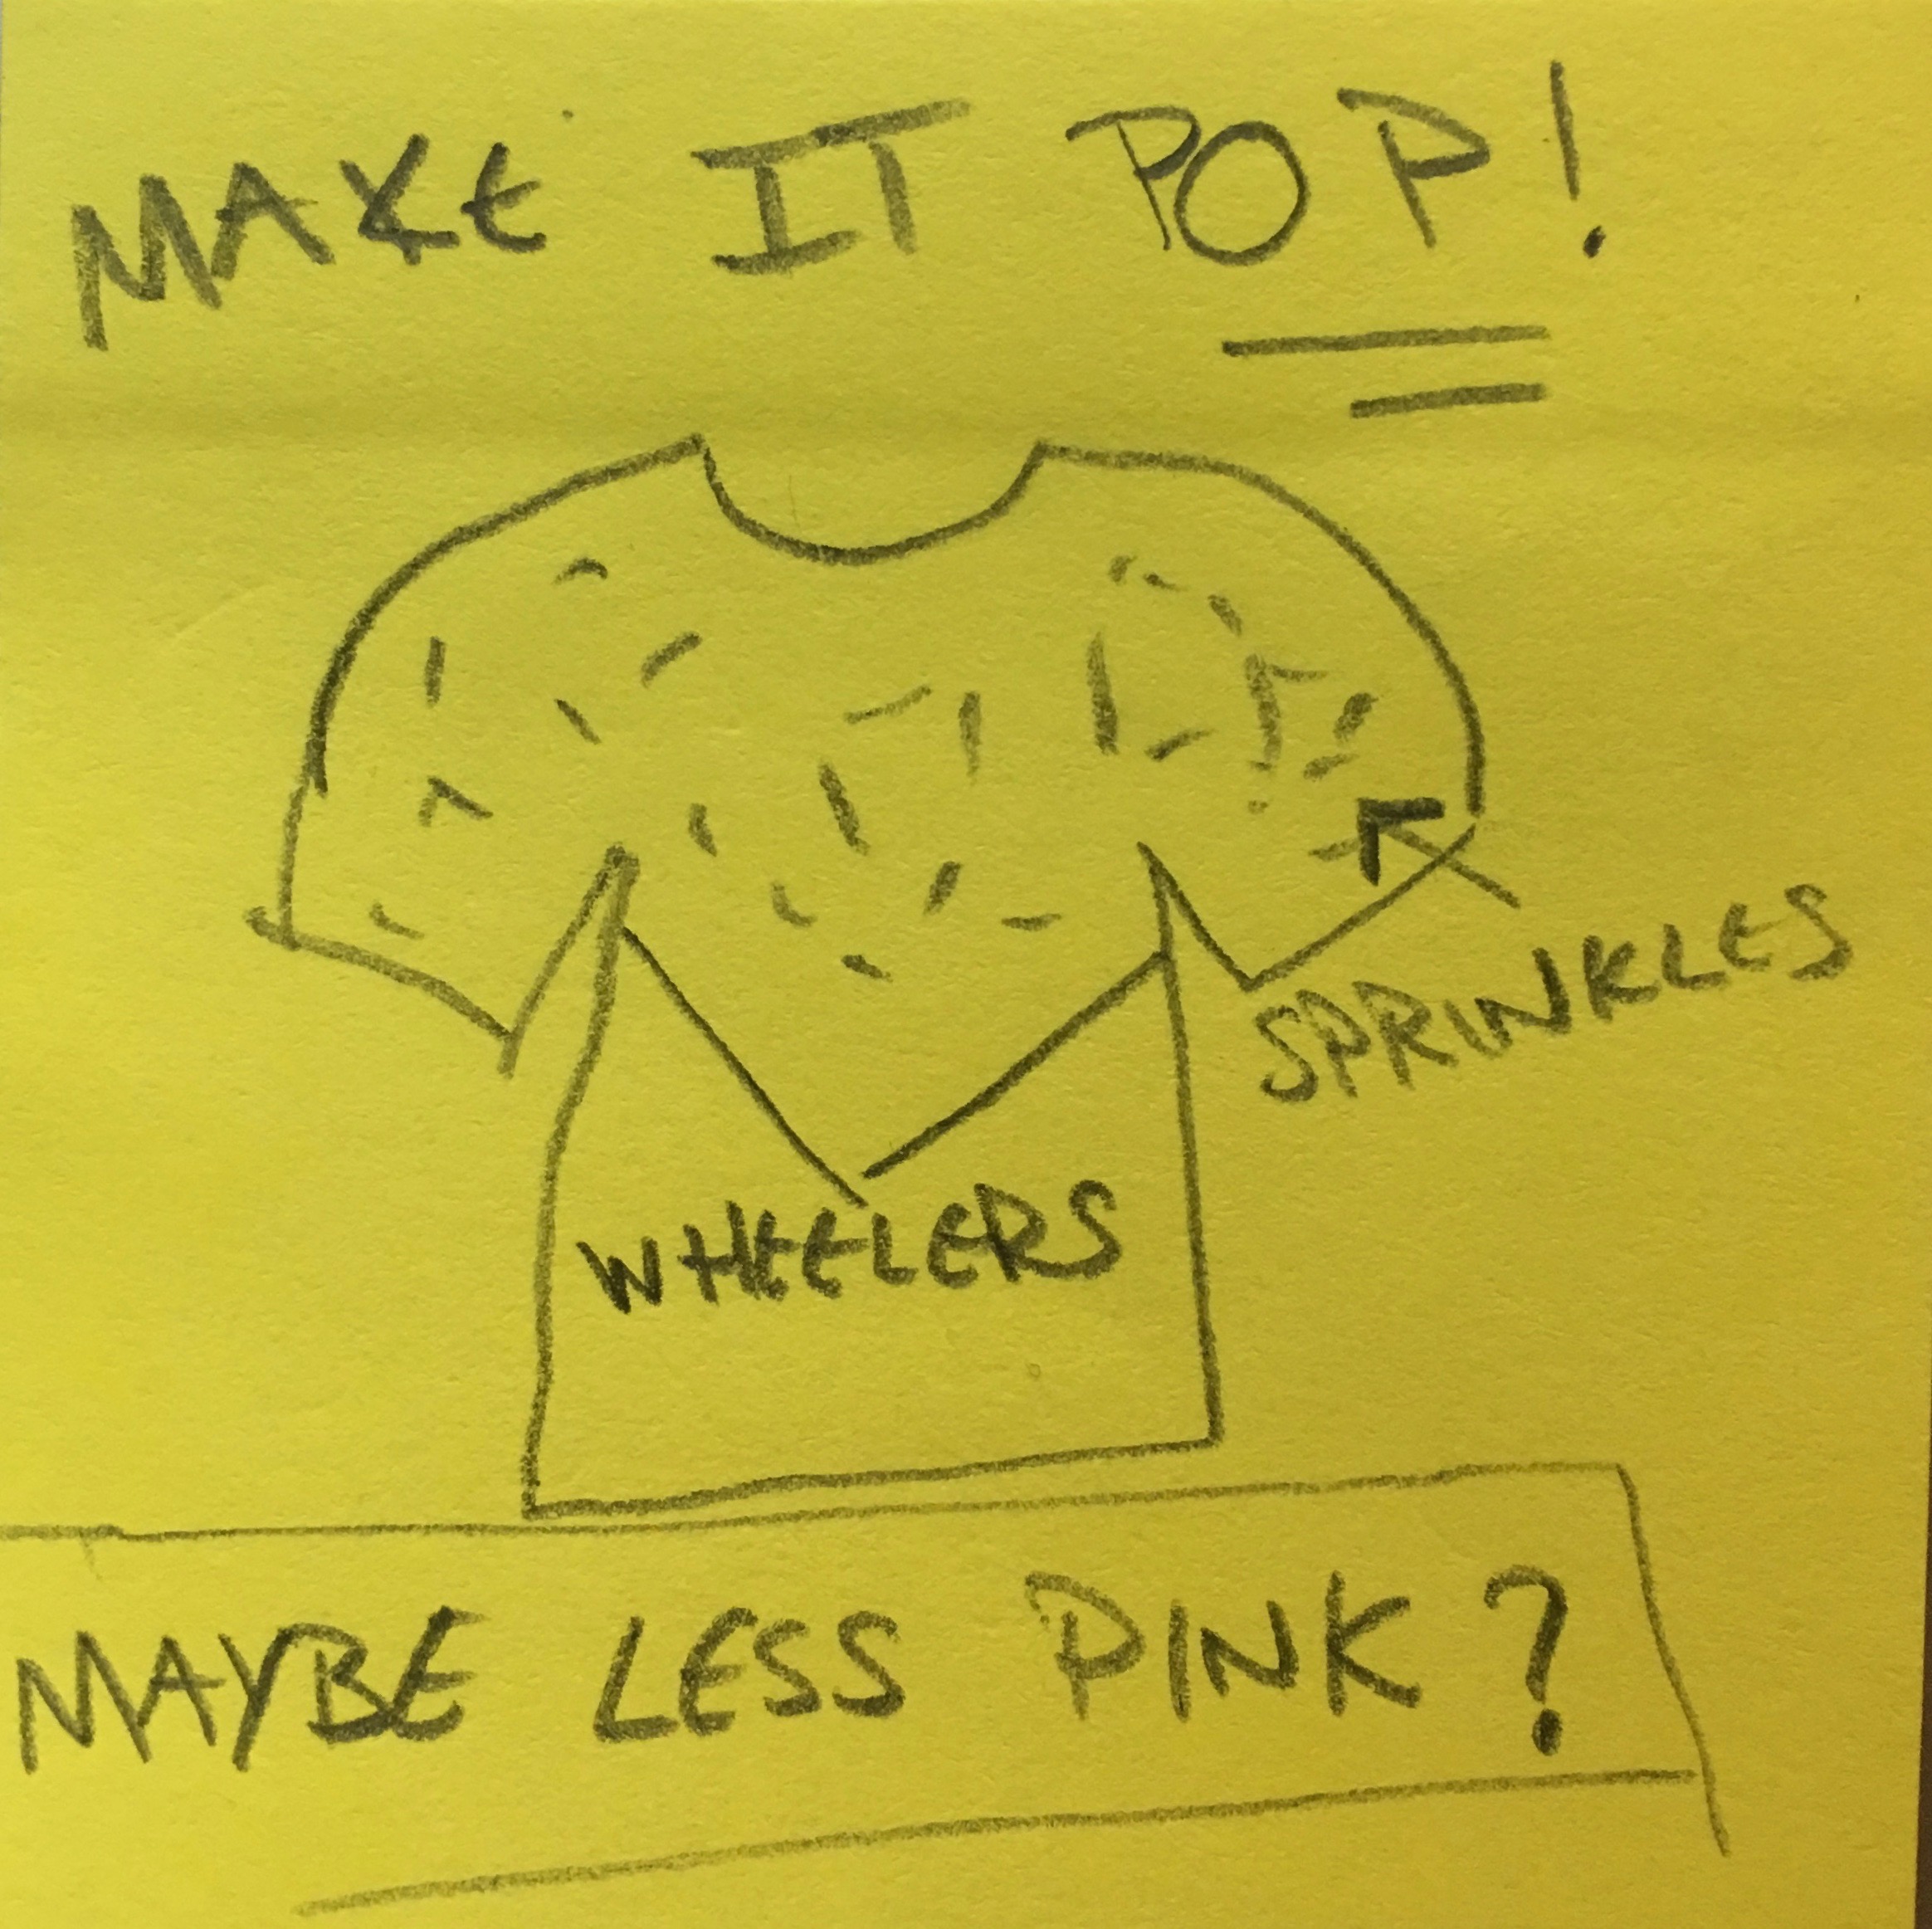 MAKE IT POP!
SPRINKLES
WHEELERS
MAYBE LESS PINK?